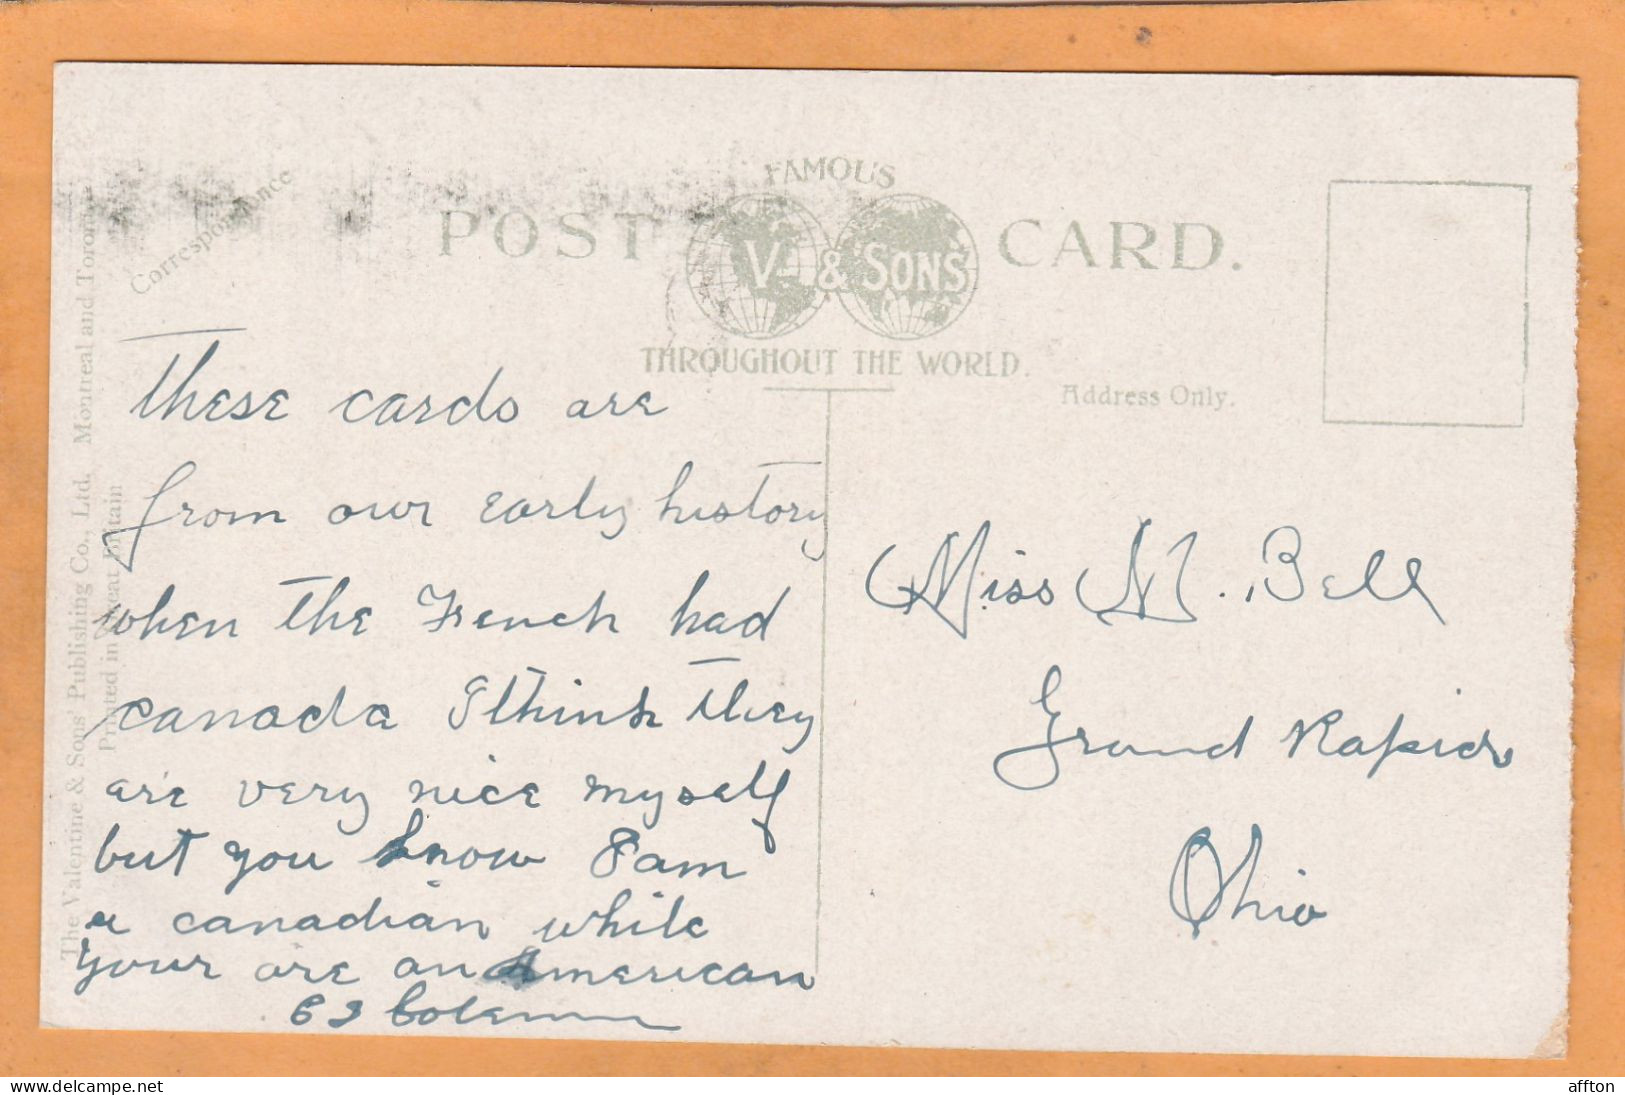 FAMOUS
POST CARD.
V & SONS
THROUGHOUT THE WORLD.
Correspondence
Address Only.
The Valentine & Sons' Publishing Co., Ltd. Montreal and Toronto
Printed in Great Britain
These cards are
from our early history
when the French had
canada I think they
are very nice myself
but you know I am
a canadian while
your are an American
Miss M. Bell
Grand Rapids
Ohio
affton